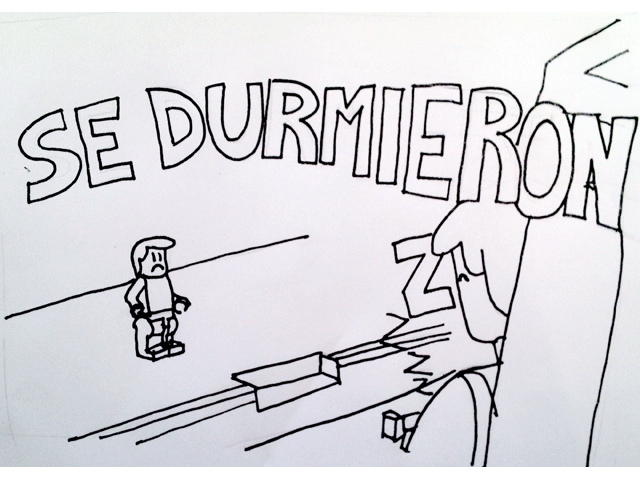 SE DURMIERON
Z